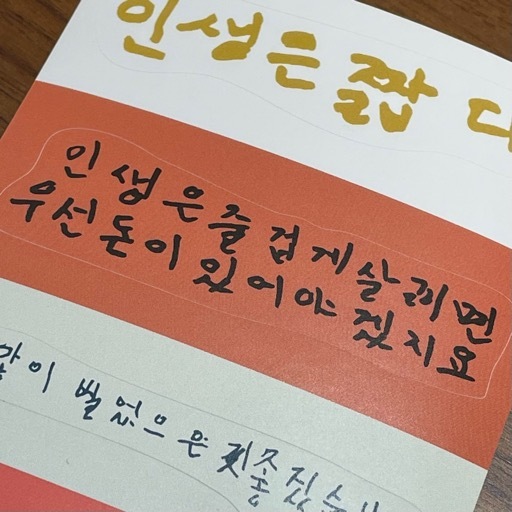 인생은 짧다
인생은 즐겁게 살려면
우선 돈이 있어야 겠지요
많이 벌었으면